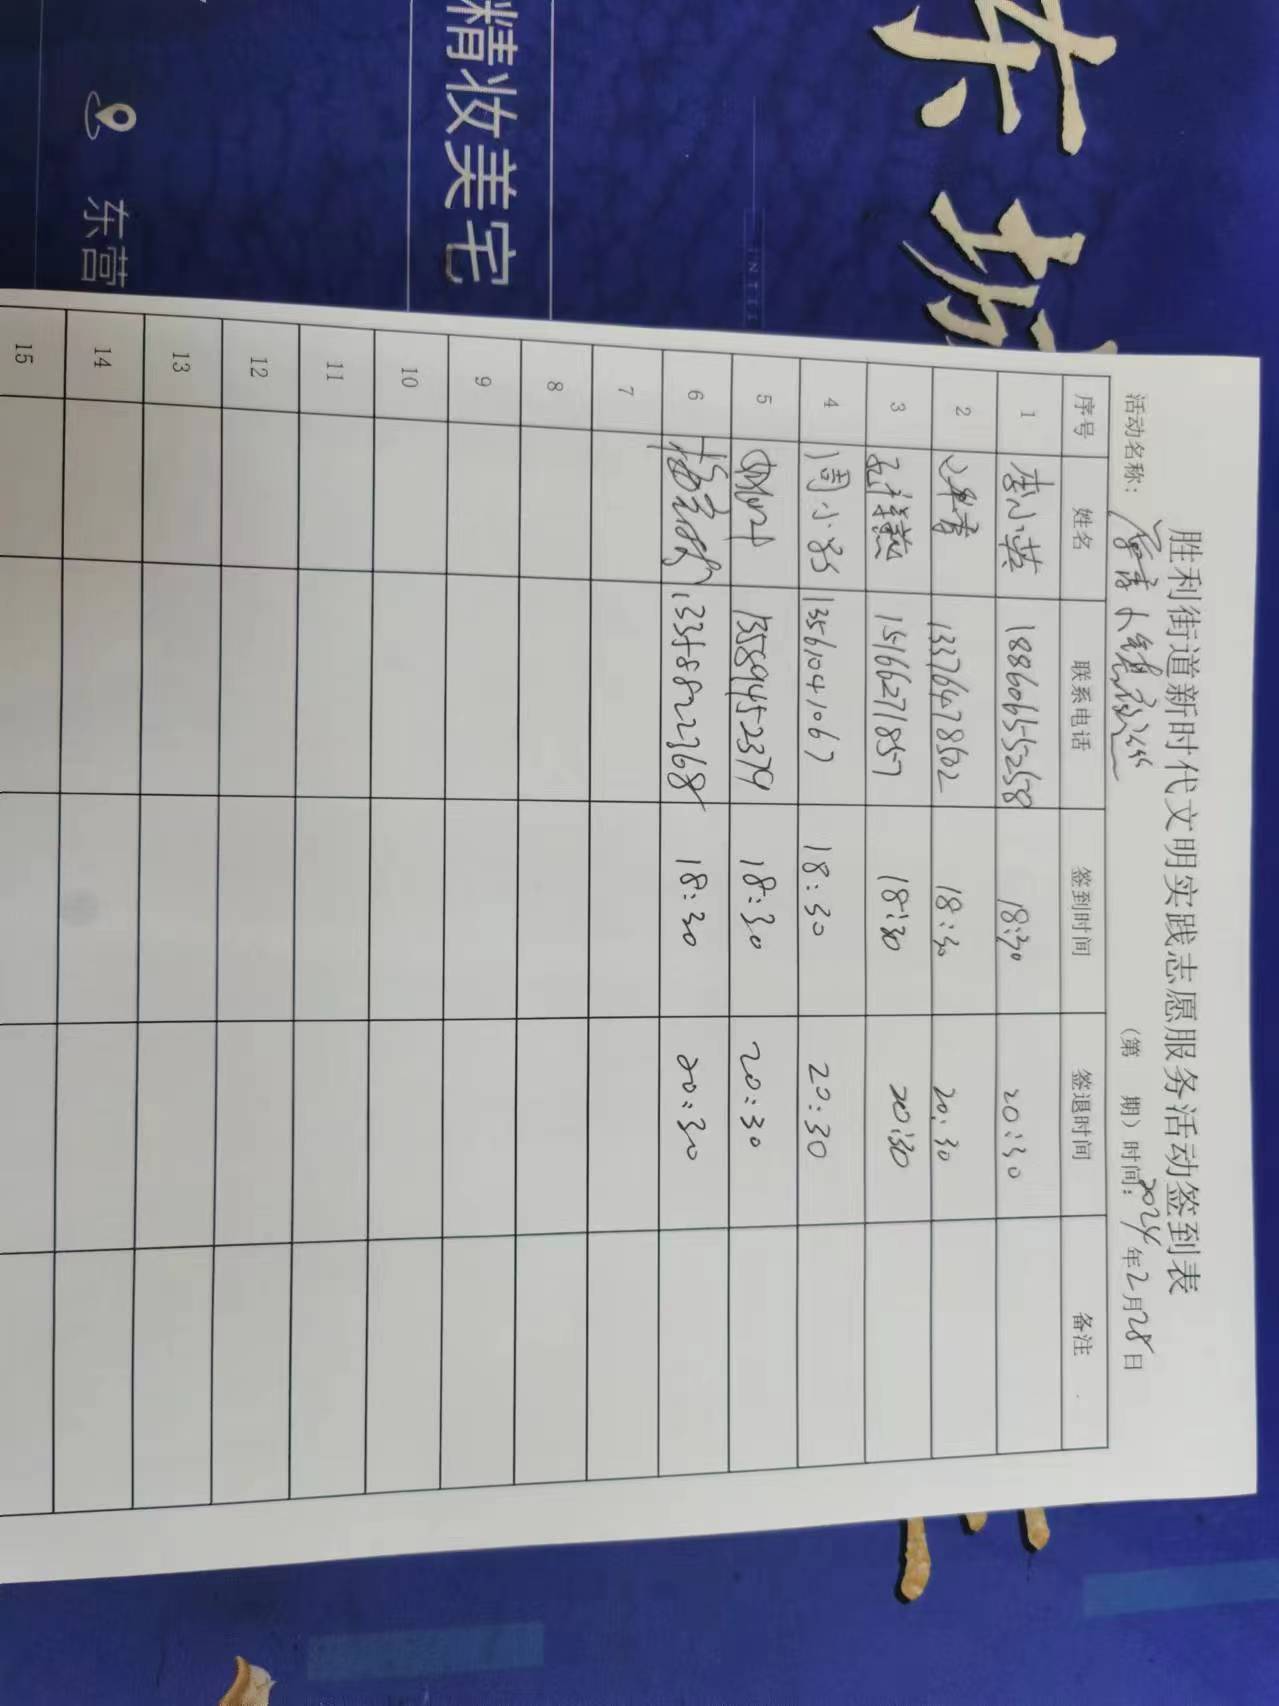 精妆美宅
东营
胜利街道新时代文明实践志愿服务活动签到表
活动名称: (第 期) 时间: 2024年2月28日
序号 姓名 联系电话 签到时间 签退时间 备注
1 李小英 18860655258 18:30 20:30
2 13376478502 18:30 20:30
3 15166271857 18:30 20:30
4 周小 13561041067 18:30 20:30
5 13589452379 18:30 20:30
6 13358822768 18:30 20:30
7
8
9
10
11
12
13
14
15